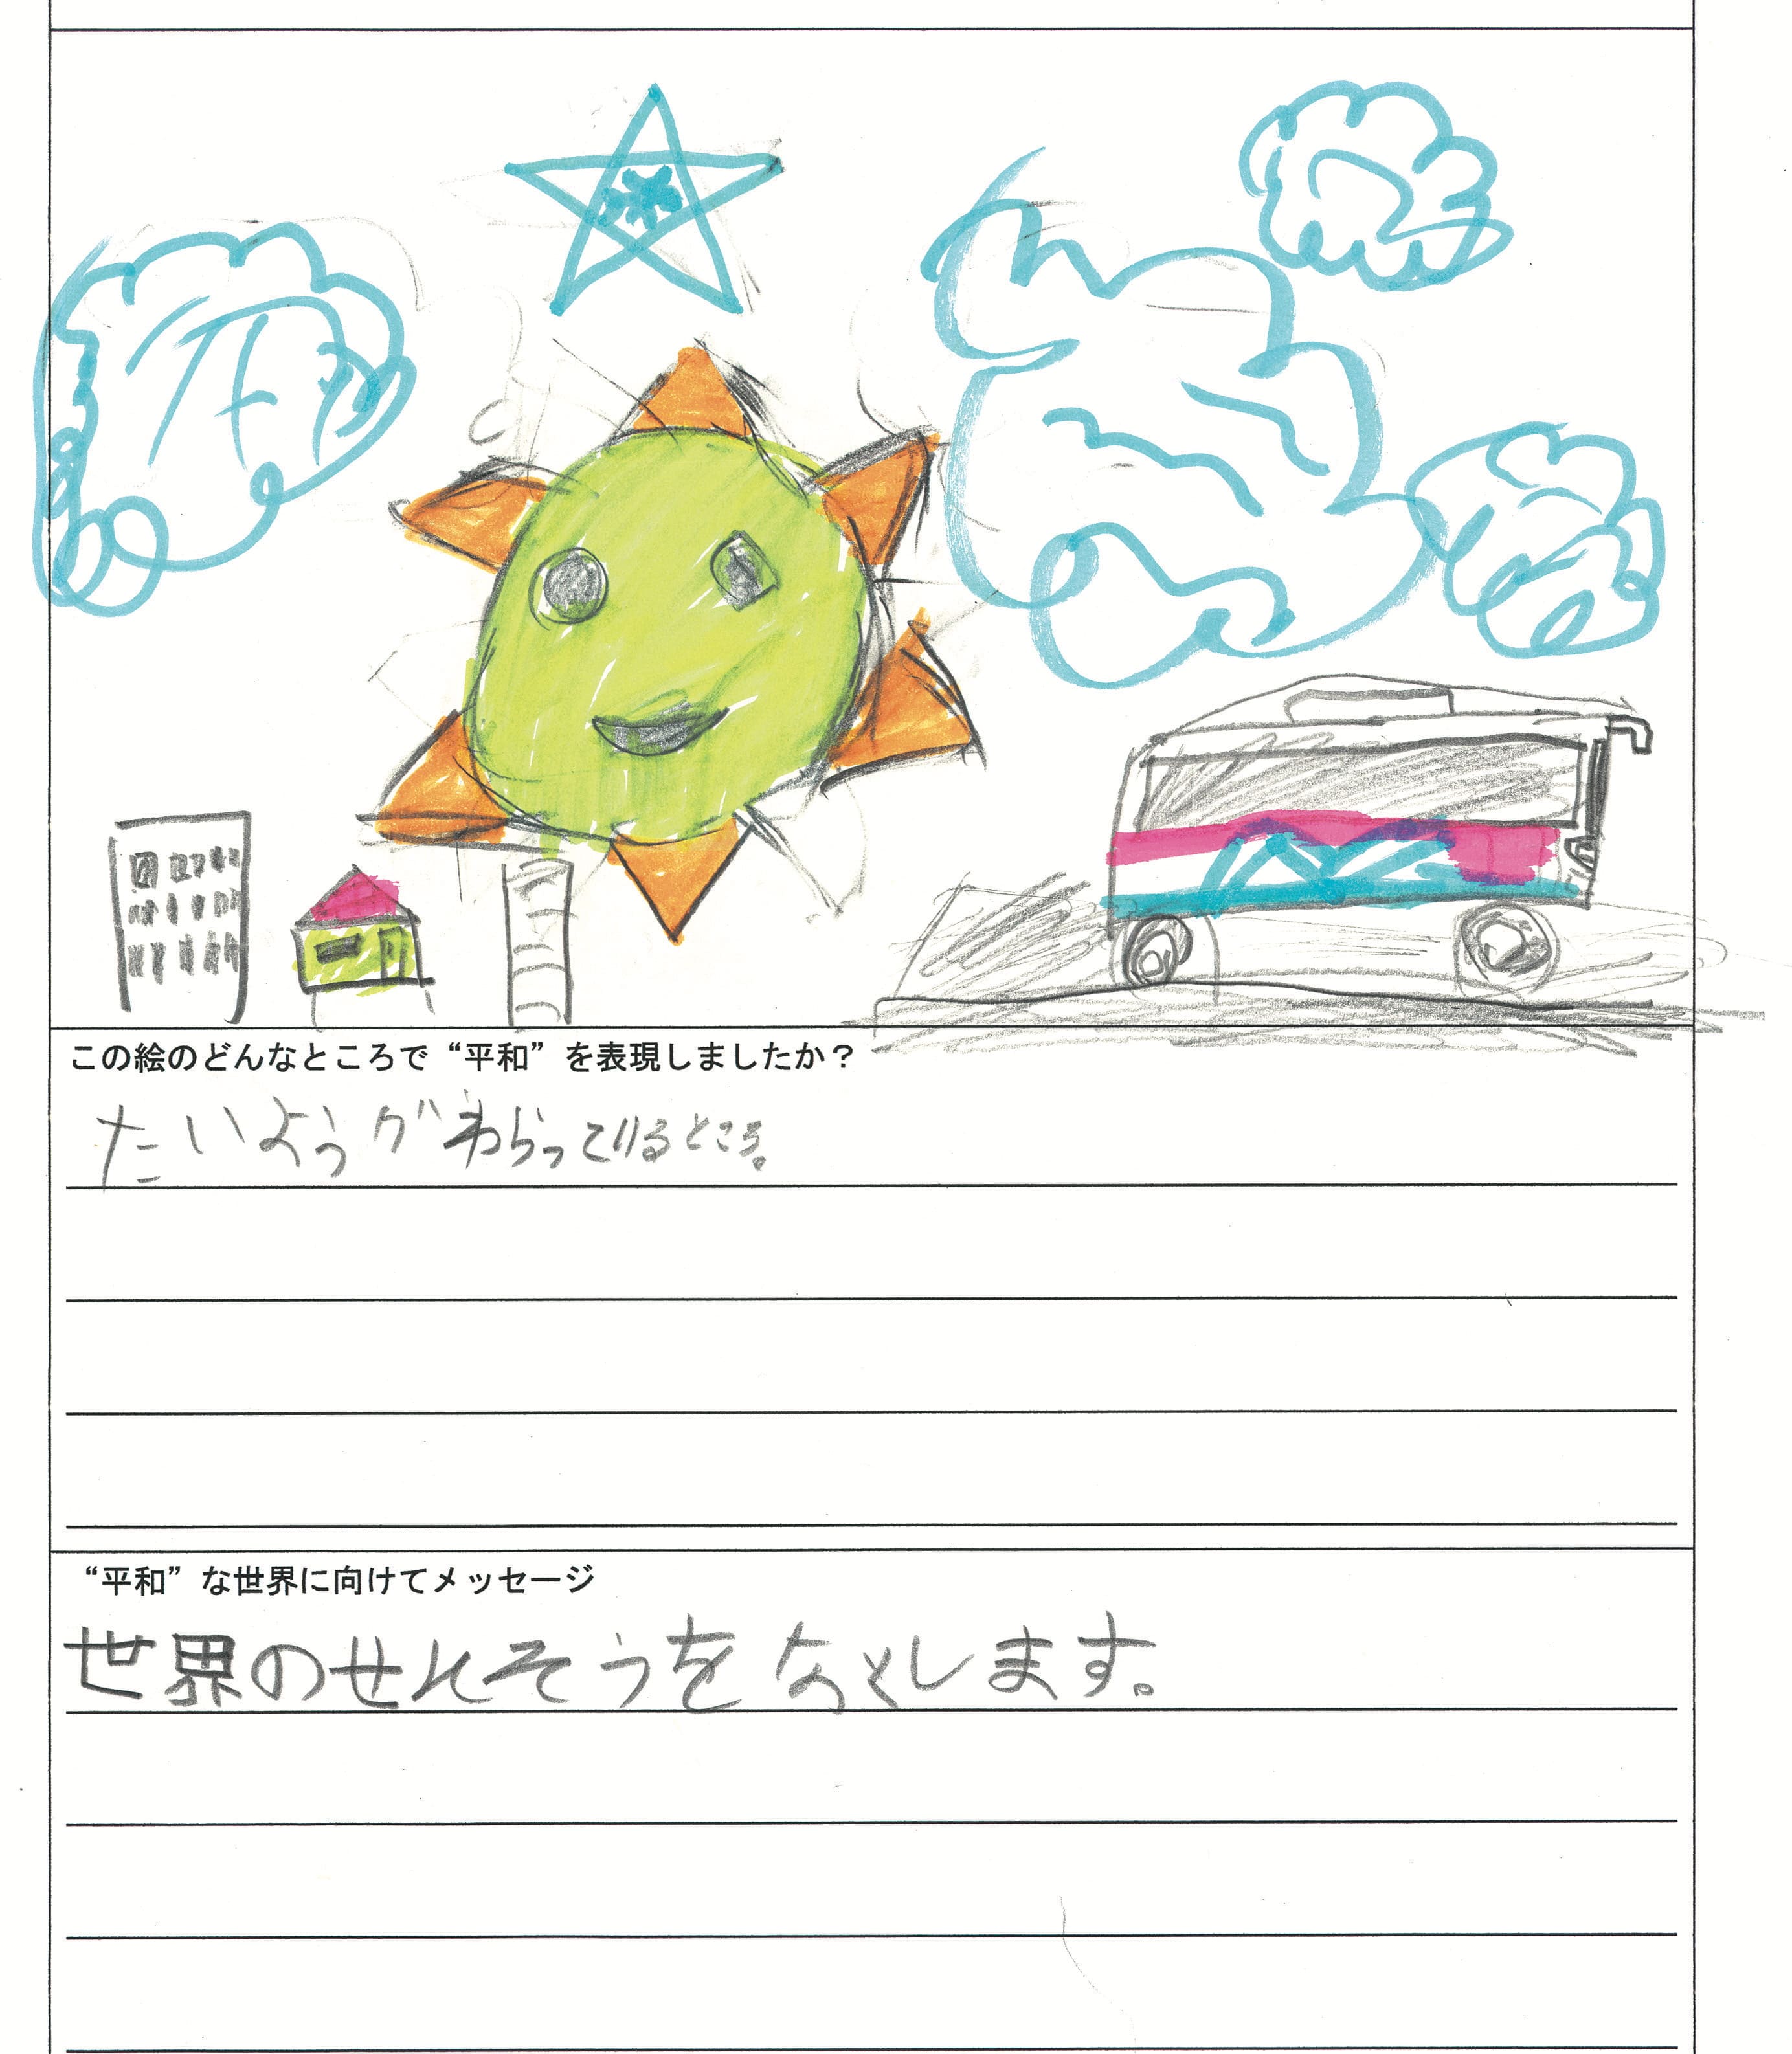 この絵のどんなところで“平和”を表現しましたか？
たいようがわらっているところ。
“平和”な世界に向けてメッセージ
世界のせんそうをなくします。